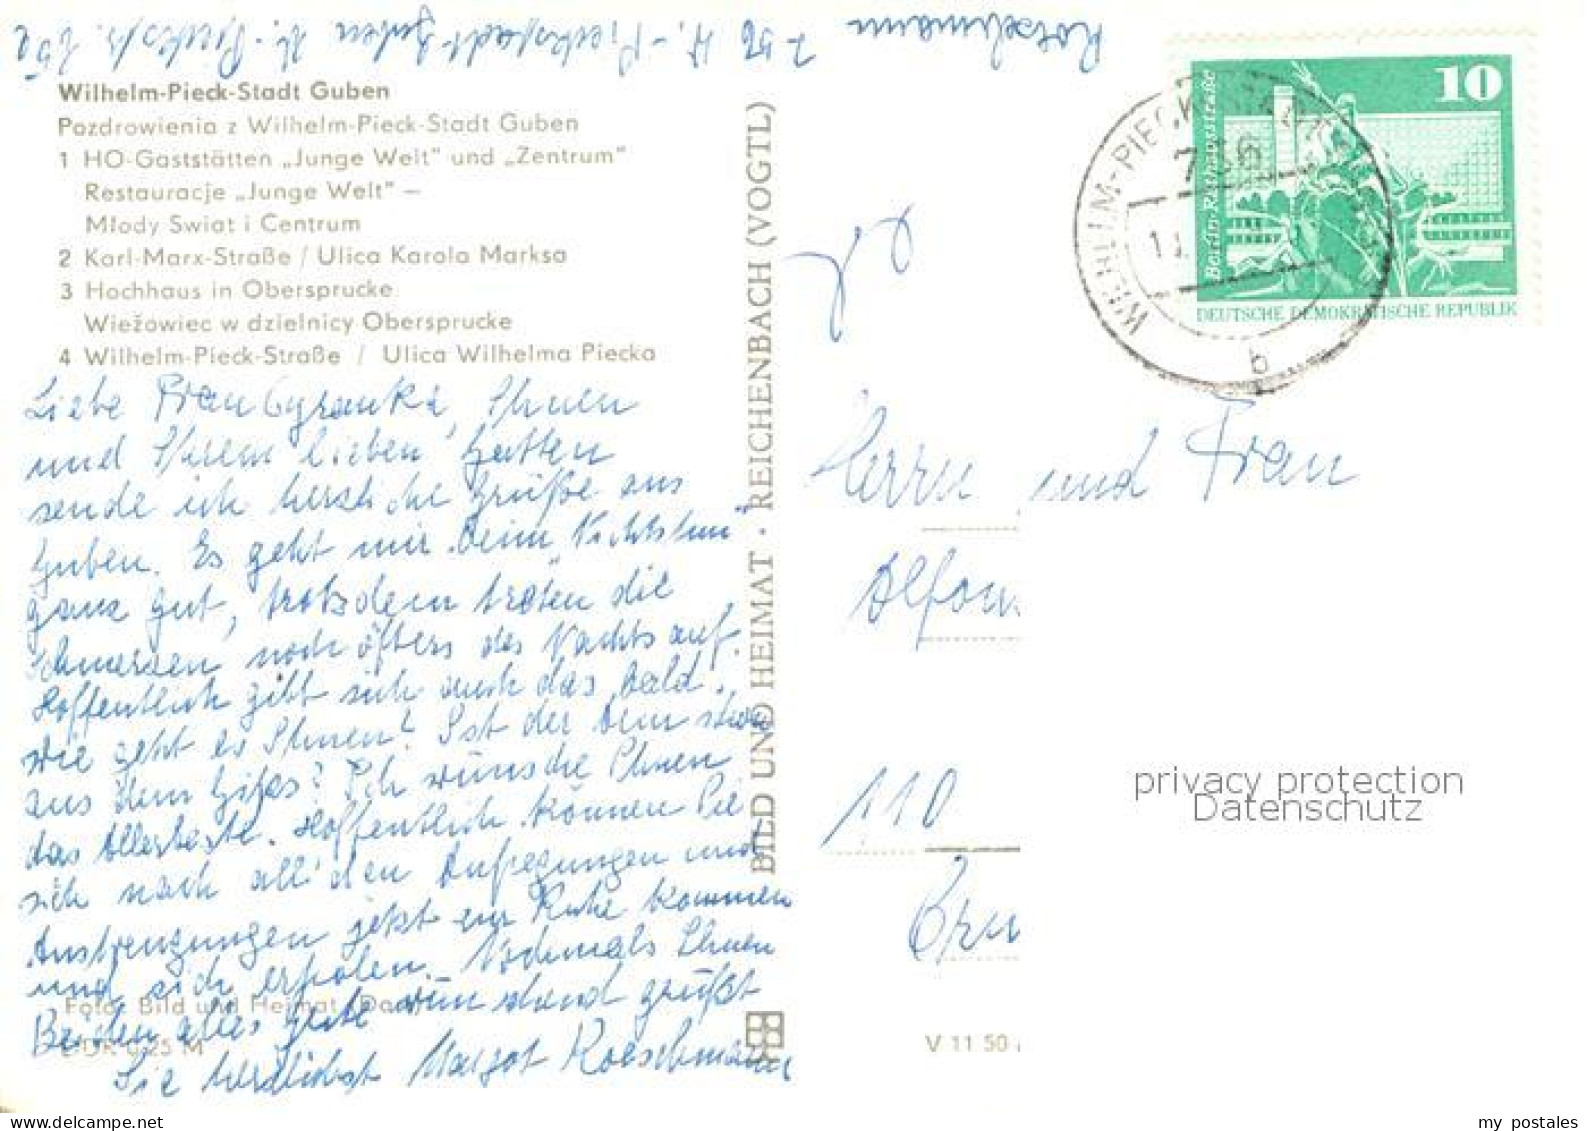 Wilhelm-Pieck-Stadt Guben
Pozdrowienia z Wilhelm-Pieck-Stadt Guben
1 HO-Gaststätten „Junge Welt" und „Zentrum"
Restauracje „Junge Welt" —
Młody Swiat i Centrum
2 Karl-Marx-Straße / Ulica Karola Marksa
3 Hochhaus in Obersprucke
Wieżowiec w dzielnicy Obersprucke
4 Wilhelm-Pieck-Straße / Ulica Wilhelma Piecka
Liebe Frau, Ihnen
und Ihrem lieben Gatten
sende ich herzliche Grüße aus
Guben. Es geht mir beim „Nichtstun"
ganz gut, trotzdem treten die
Schmerzen noch öfters des Nachts auf.
Hoffentlich gibt sich auch das bald.
Wie geht es Ihnen? Ist der Arm schon
aus dem Gips? Ich wünsche Ihnen
das Allerbeste. Hoffentlich können Sie
sich nach all' den Aufregungen und
Anstrengungen jetzt zur Ruhe kommen
und sich erholen. Nochmals Ihnen
Beiden alles Gute wünschend grüßt
Sie herzlichst Margot Roeschmann
Foto: Bild und Heimat
BILD UND HEIMAT · REICHENBACH (VOGTL)
V 11 50
10
Berlin-Rathausstraße
DEUTSCHE DEMOKRATISCHE REPUBLIK
WILHELM-PIECK-STADT GUBEN
756
b
Herrn und Frau
Alfons
110
privacy protection
Datenschutz
www.delcampe.net
my_postales